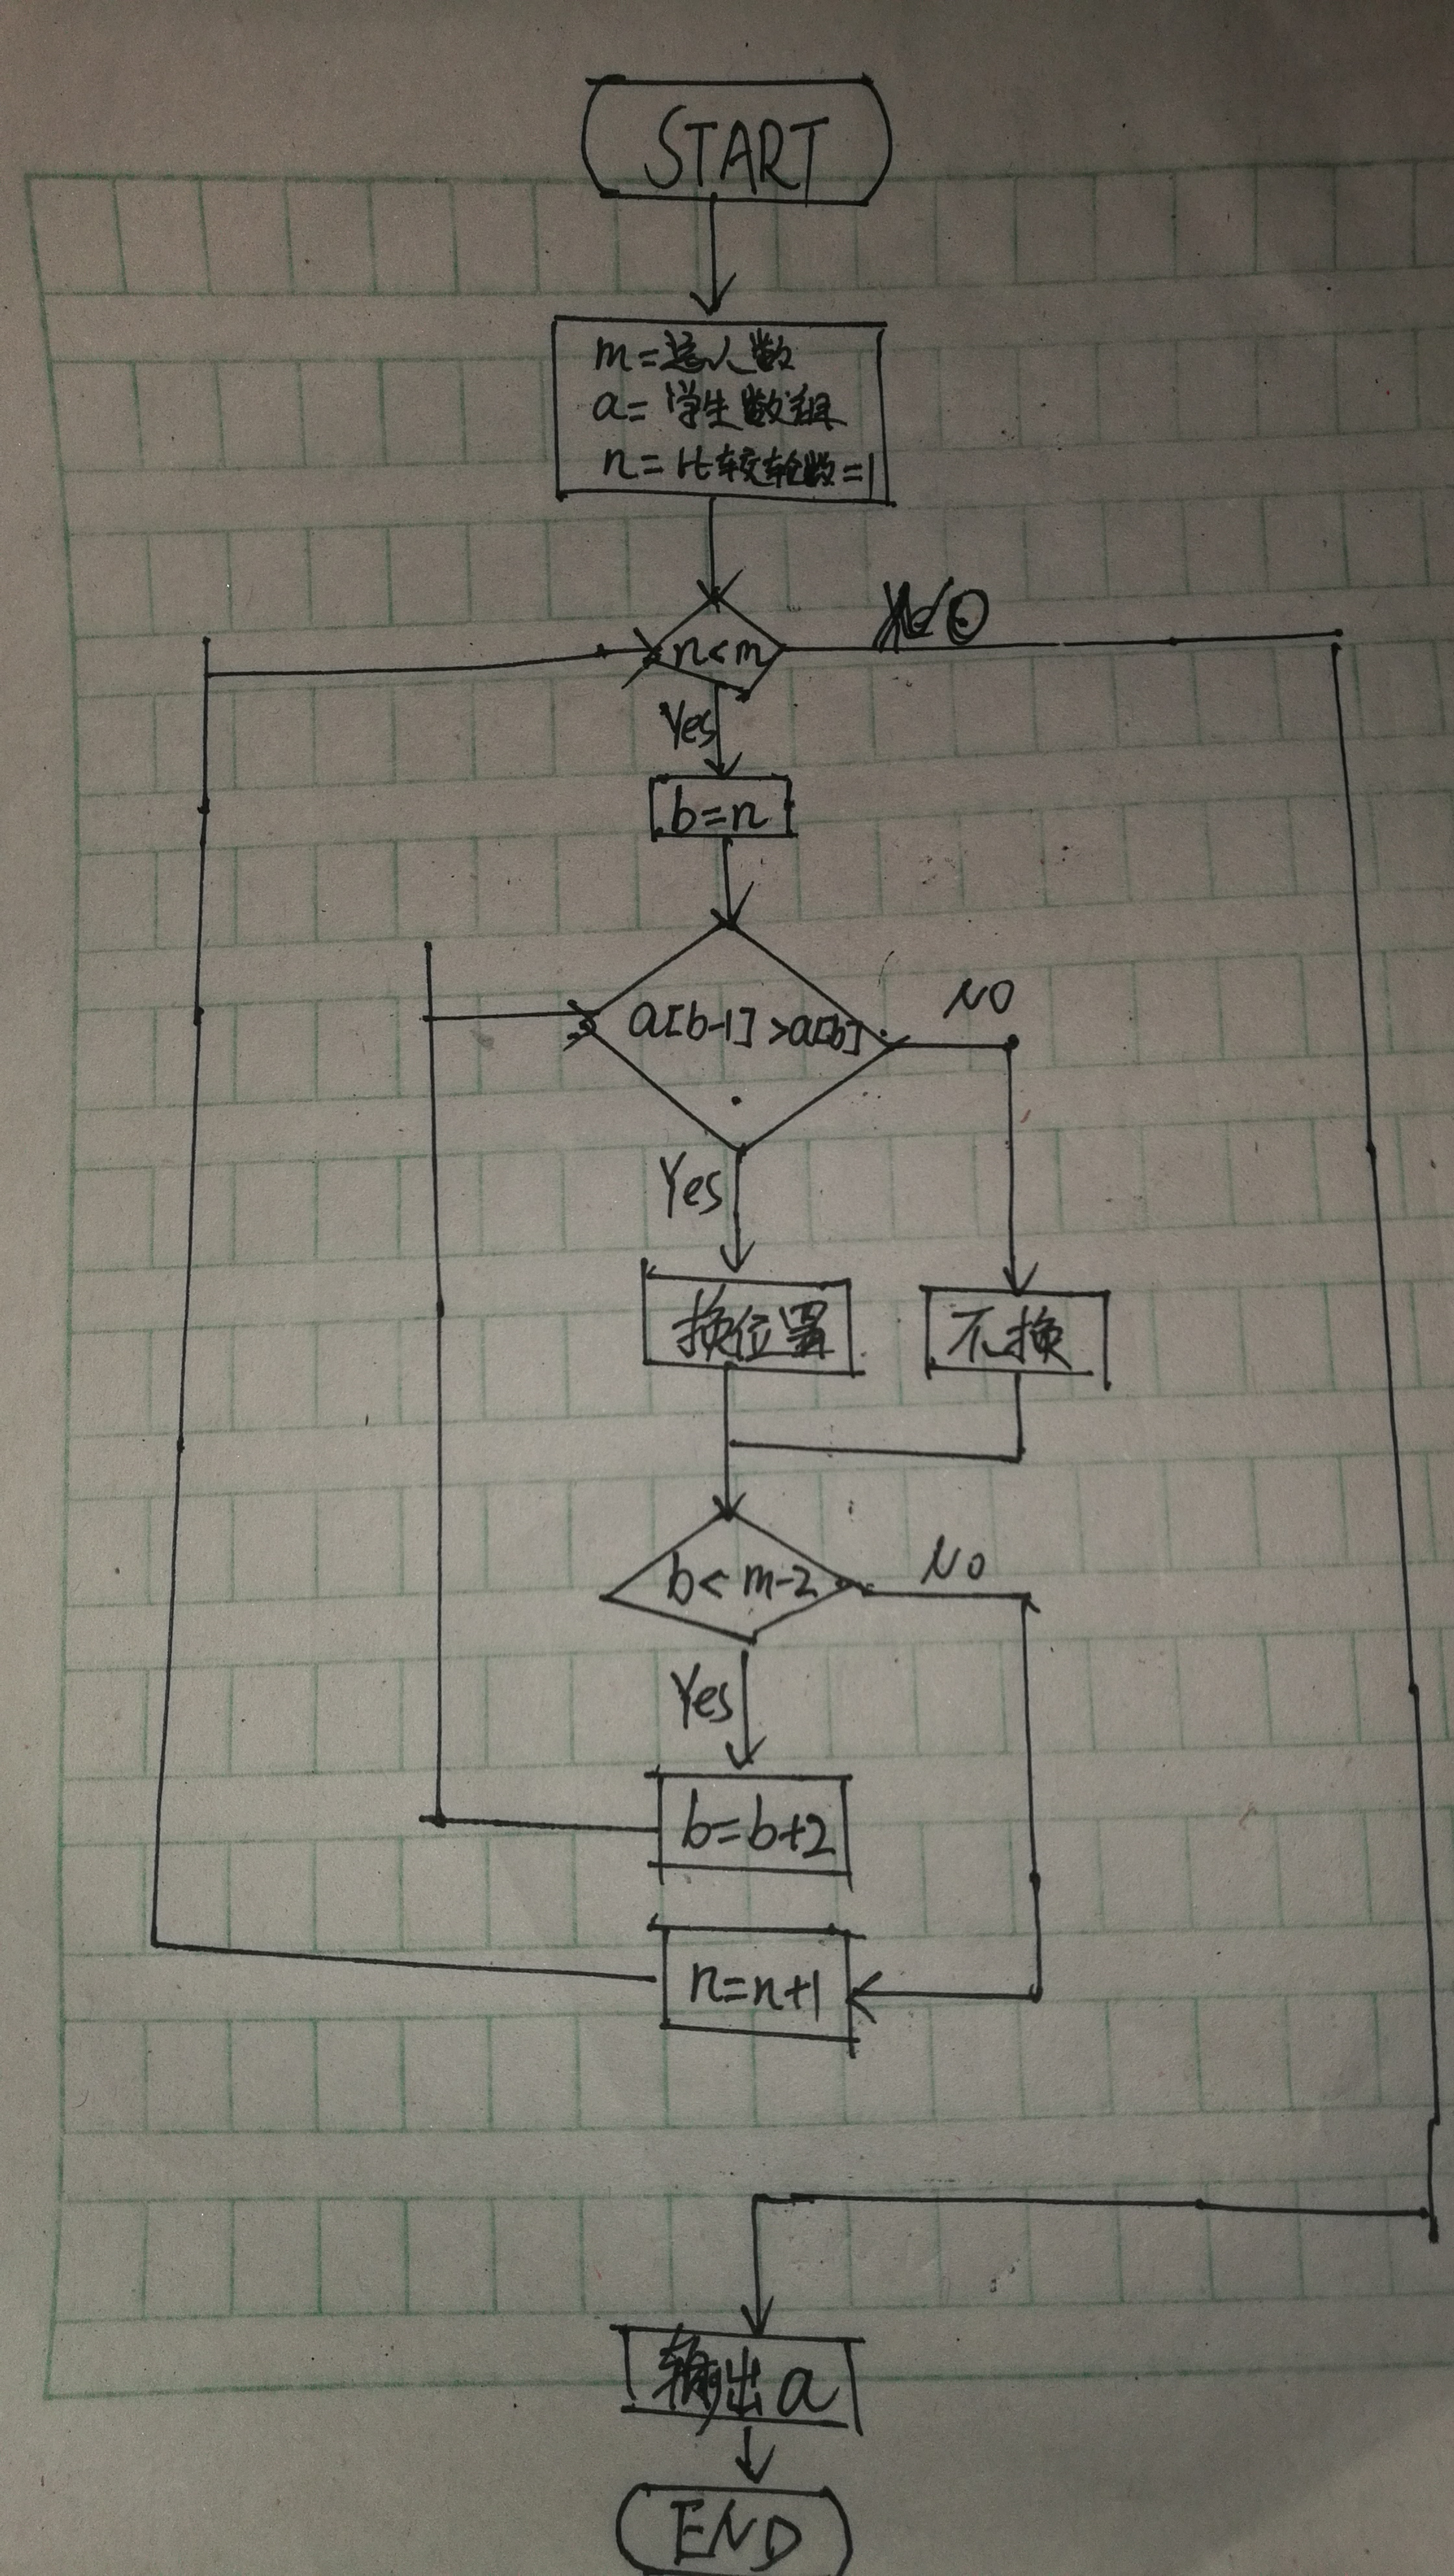 START
m=总人数
a=学生数组
n=比较轮数=1
n<m
NO
Yes
b=n
a[b-1]>a[b]
NO
Yes
换位置
不换
b<m-2
NO
Yes
b=b+2
n=n+1
输出a
END